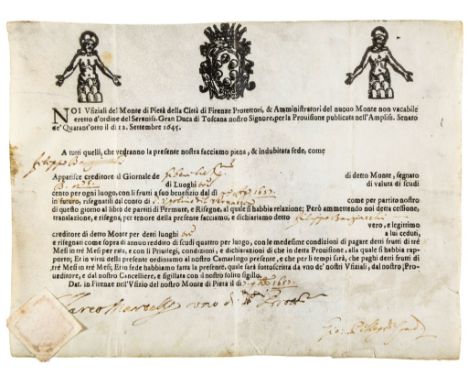 NOI Vfiziali del Monte di Pietà della Città di Firenze Protettori, & Amministratori del nuouo Monte non vacabile
eretto d'ordine del Sereniss. Gran Duca di Toscana nostro Signore, per la Prouisione publicata nell'Ampliss. Senato
de' Quarant'otto il dì 12. Settembre 1645.
A tutti quelli, che vedranno la presente nostra facciamo piena, & indubitata fede, come
Apparisce creditore il Giornale de
di detto Monte, segnato
di Luoghi
di valuta di scudi
cento per ogni luogo, con li frutti a suo benefizio dal dì
in futuro, risegnatili dal conto di
come per partito nostro
di questo giorno al libro de partiti di Permute, e Risegne, al quale si habbia relazione; Però ammettendo noi detta cessione,
translazione, e risegna, per tenore della presente facciamo, e dichiariamo detto
vero, e legitimo
creditore di detto Monte per detti luoghi
a lui ceduti,
e risegnati come sopra di annuo reddito di scudi quattro per luogo, con le medesime condizioni di pagare detti frutti di tre
Mesi in tre Mesi per rata, e con li Priuilegi, condizioni, e dichiarazioni di che in detta Prouisione, alla quale si habbia rap-
porto; Et in virtù della presente ordiniamo al nostro Camarlingo presente, e che per li tempi sarà, che paghi detti frutti di
tre Mesi in tre Mesi; Et in fede habbiamo fatta la presente, quale sarà sottoscritta da vno de' nostri Vfiziali, dal nostro; Pro-
ueditore, e dal nostro Cancelliere, e sigillata con il nostro solito sigillo.
Dat. in Firenze nell'Vfizio del nostro Monte di Pietà il dì